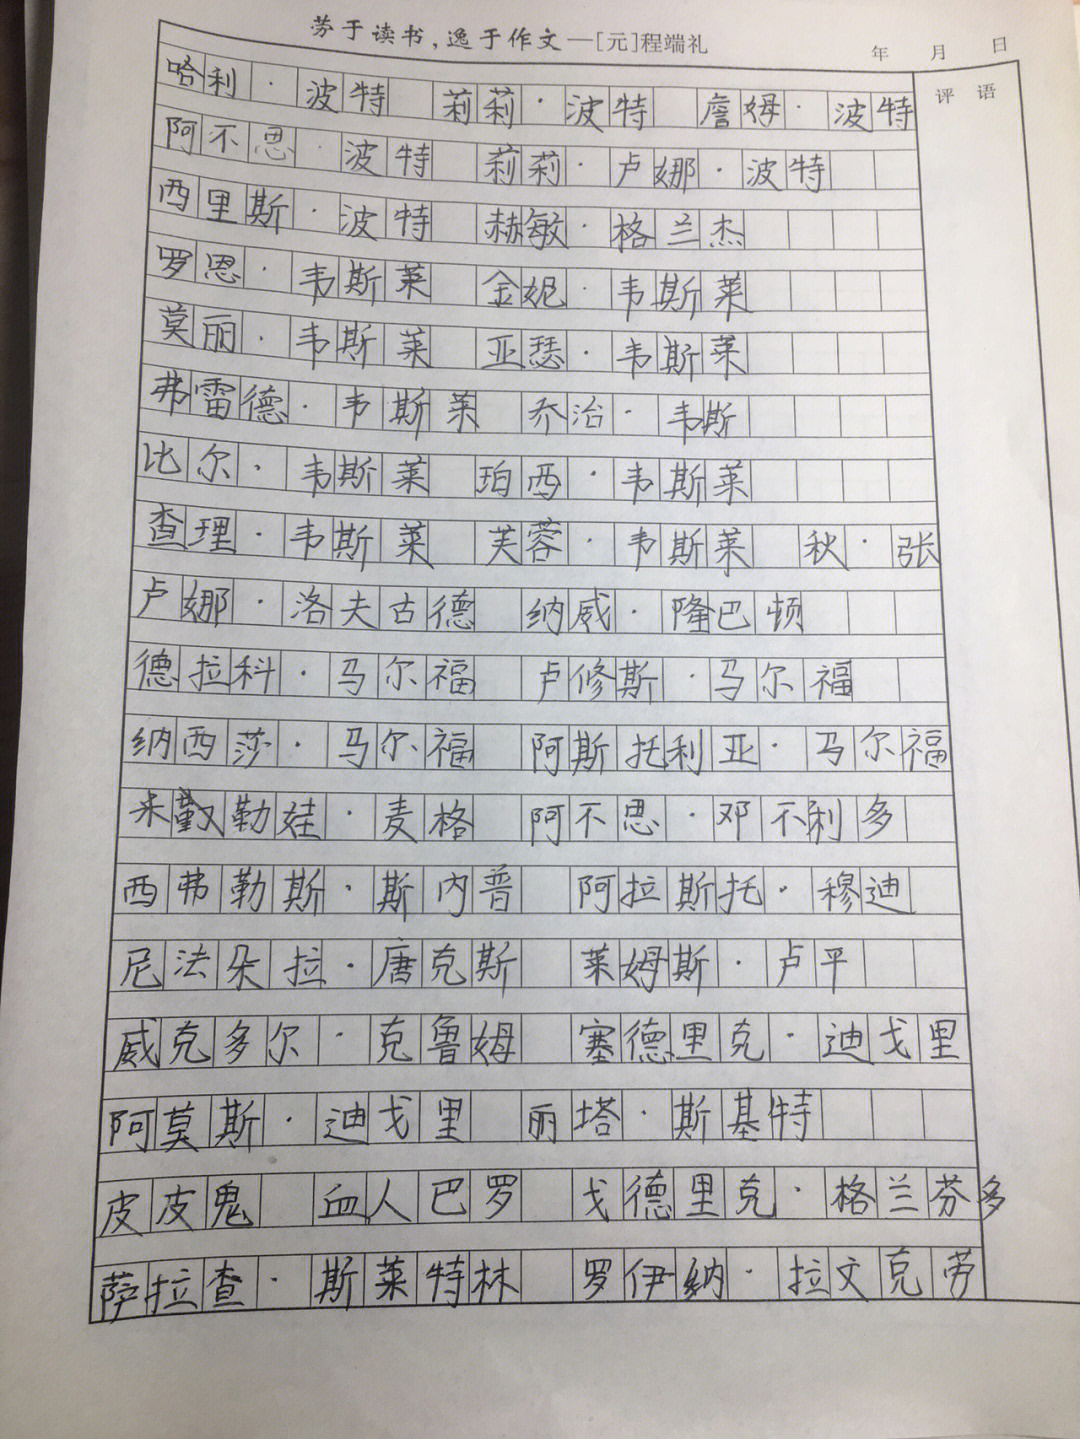 劳于读书,逸于作文—[元]程端礼
年 月 日
评 语
哈利·波特 莉莉·波特 詹姆·波特
阿不思·波特 莉莉·卢娜·波特
西里斯·波特 赫敏·格兰杰
罗恩·韦斯莱 金妮·韦斯莱
莫丽·韦斯莱 亚瑟·韦斯莱
弗雷德·韦斯莱 乔治·韦斯
比尔·韦斯莱 珀西·韦斯莱
查理·韦斯莱 芙蓉·韦斯莱 秋·张
卢娜·洛夫古德 纳威·隆巴顿
德拉科·马尔福 卢修斯·马尔福
纳西莎·马尔福 阿斯托利亚·马尔福
米勒娃·麦格 阿不思·邓不利多
西弗勒斯·斯内普 阿拉斯托·穆迪
尼法朵拉·唐克斯 莱姆斯·卢平
威克多尔·克鲁姆 塞德里克·迪戈里
阿莫斯·迪戈里 丽塔·斯基特
皮皮鬼 血人巴罗 戈德里克·格兰芬多
萨拉查·斯莱特林 罗伊纳·拉文克劳